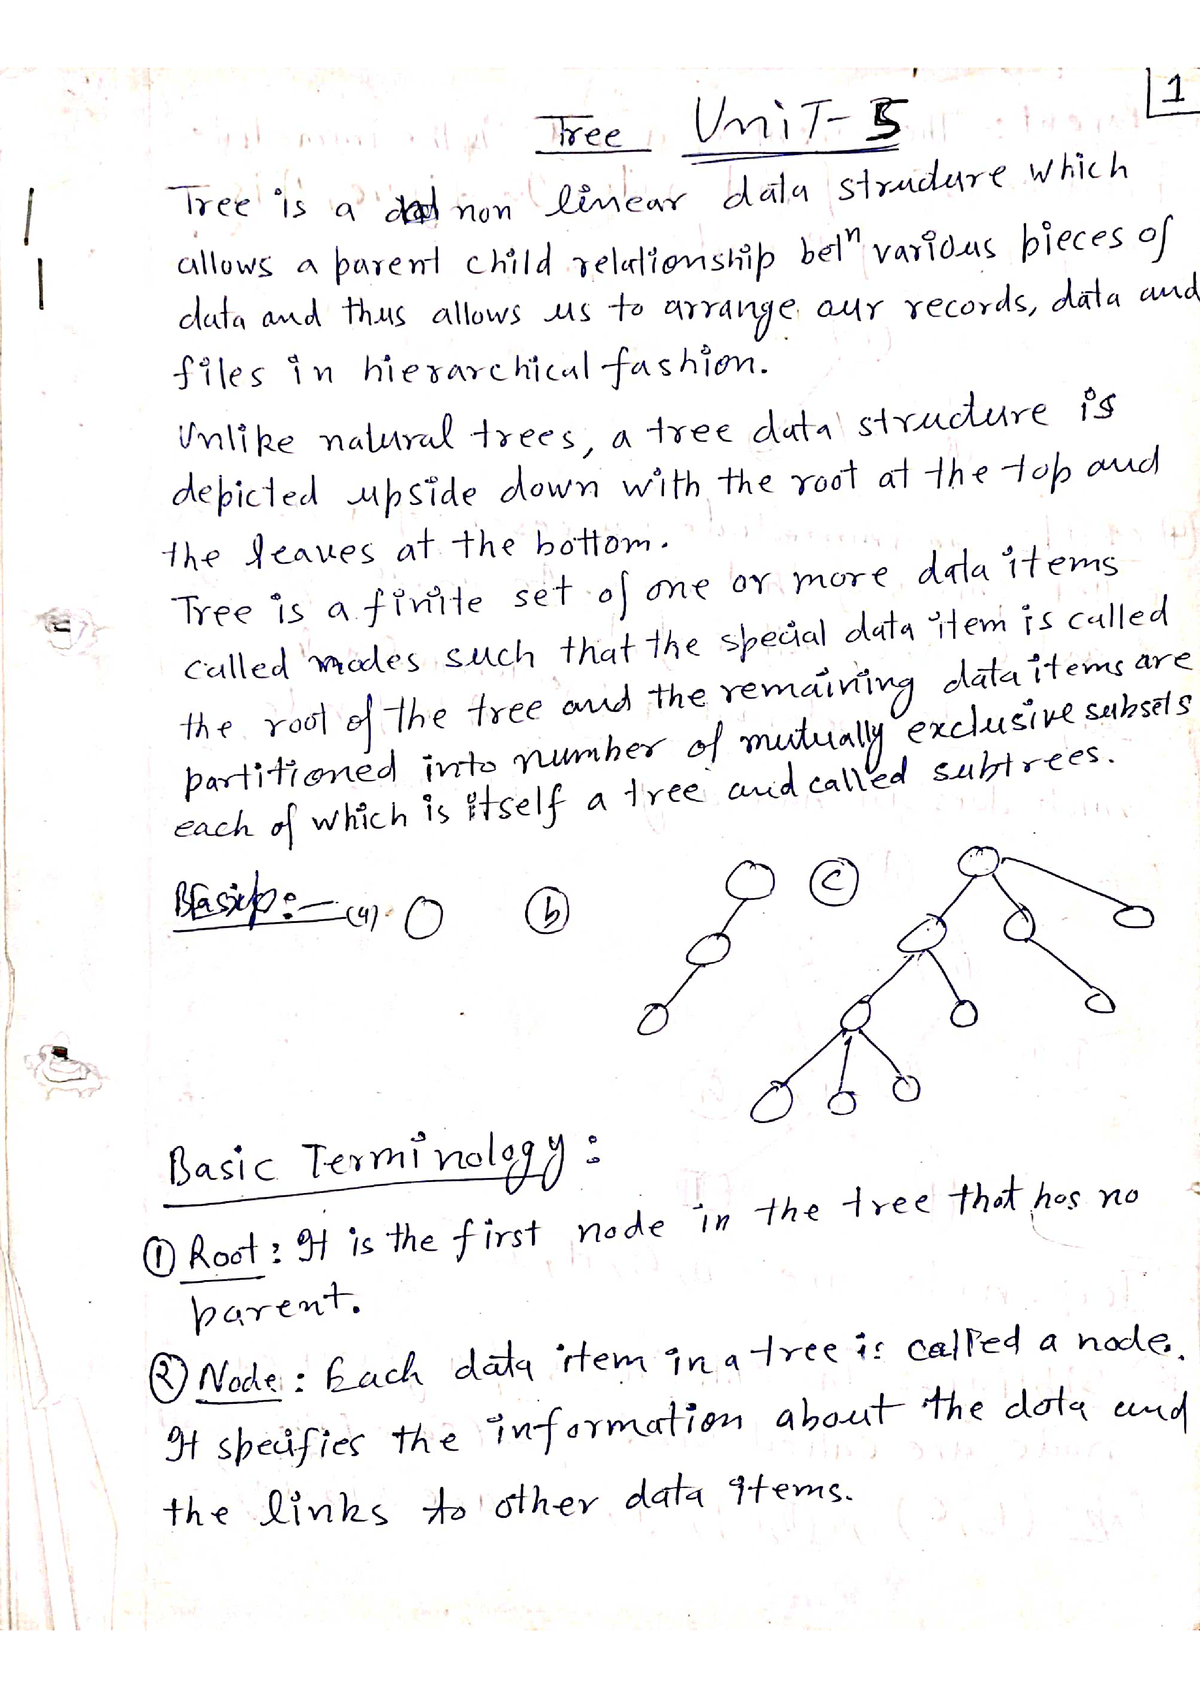 1
Tree UniT-5
Tree is a non linear data structure which
allows a parent child relationship betn various pieces of
data and thus allows us to arrange our records, data and
files in hierarchical fashion.
Unlike natural trees, a tree data structure is
depicted upside down with the root at the top and
the leaves at the bottom.
Tree is a finite set of one or more data items
called nodes such that the special data item is called
the root of the tree and the remaining data items are
partitioned into number of mutually exclusive subsets
each of which is itself a tree and called subtrees.
(a) (b) (c)
Basic Terminology :
① Root : It is the first node in the tree that has no
parent.
② Node : Each data item in a tree is called a node.
It specifies the information about the data and
the links to other data items.